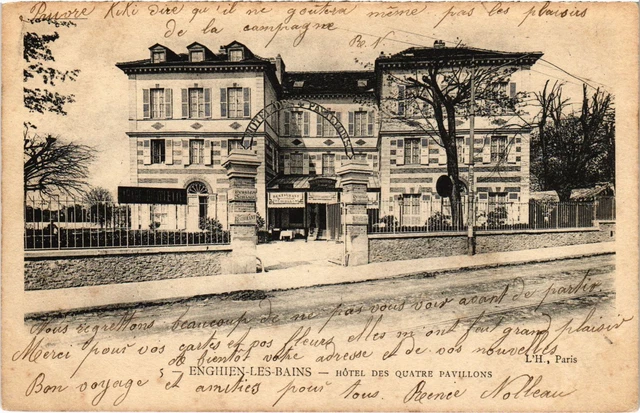 Pauvre Kiki dire qu'il ne goûtera même pas les plaisirs
de la campagne
R. N
HÔTEL DES 4 PAVILLONS
RESTAURANT
Nous regrettons beaucoup de ne pas vous voir avant de partir
Merci pour vos cartes et vos fleurs elles m'ont fait grand plaisir
à bientôt votre adresse et de vos nouvelles
L'H., Paris
5 — ENGHIEN-LES-BAINS — HÔTEL DES QUATRE PAVILLONS
Bon voyage et amitiés pour tous. Renée Nolleau